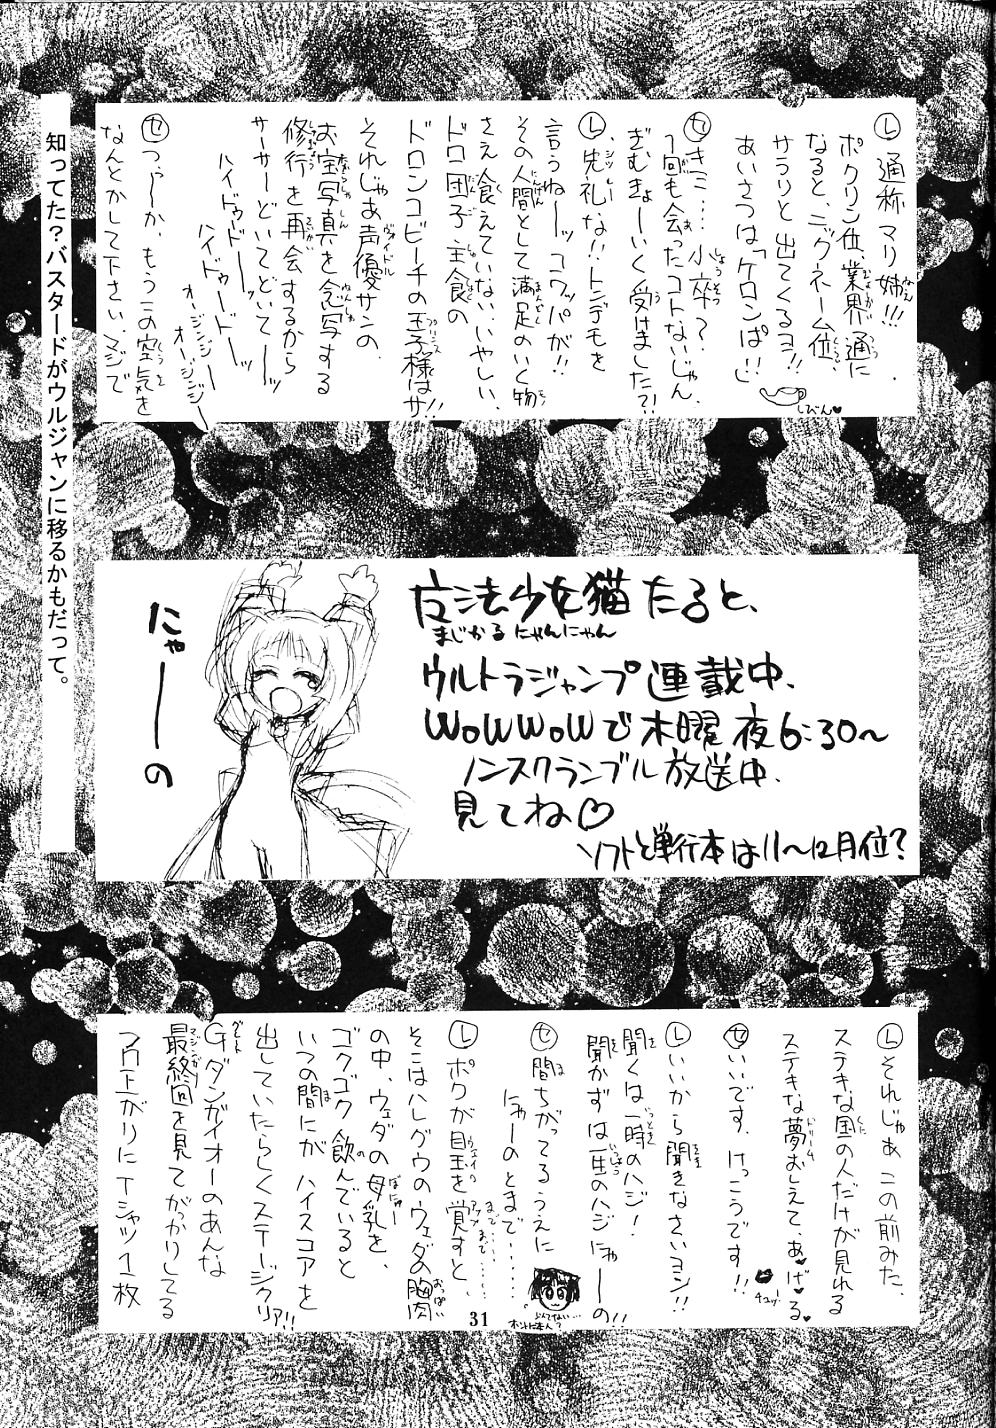 Ⓛ通称マリ姉!!!
ポクリン位業界通に
なると、ニックネーム位、
サラリと出てくるヨ!!
あいさつは「ケロンぱ!!」
しびん♥
Ⓣき…小卒?
1回も会ったコトないじゃん、
ぎむきょーいく受けました?!
Ⓛ失礼な!!トンデモを
言うねーッコワッパが!!
その人間として満足のいく物
さえ食えていない、いやしい、
ドロ団子主食の
ドロンコビーチの王子様はサ!!
それじゃあ声優サンの、
お宝写真を念写する
修行を再会するから
サーサーどいてどいてーッ
ハイドゥードーーッ
ハイドゥードードー
オージンジー
オージンジー
Ⓣつぅーか、もうこの空気を
なんとかして下さい、マジで
知ってた?バスタードがウルジャンに移るかもだって。
魔法少女猫たると、
まじかるにゃんにゃん
ウルトラジャンプ連載中、
WOWWOWで木曜夜6:30〜
ノンスクランブル放送中、
見てね♡
ソフトと単行本は11〜12月位?
にゃーの
Ⓛそれじゃあこの前みた、
ステキな国の人だけが見れる
ステキな夢おしえて、あ♥げ♥る♥
チュッ!
Ⓣいいです、けっこうです!!
Ⓛいいから聞きなさいヨン!!
聞くは一時のハジ!
聞かずは一生のハジにゃーの!!
Ⓣ間ちがってるうえに
にゃーのとまで……
Ⓛポクが目玉を覚すと、
そこはハレグウのウェダの胸肉
の中、ウェダの母乳を、
ゴクゴク飲んでいると
いつの間にがハイスコアを
出していたらしくステージクリア!!
Gダンガイオーのあんな
最終回を見てがかりしてる
プロ上がりにTシャツ1枚
31